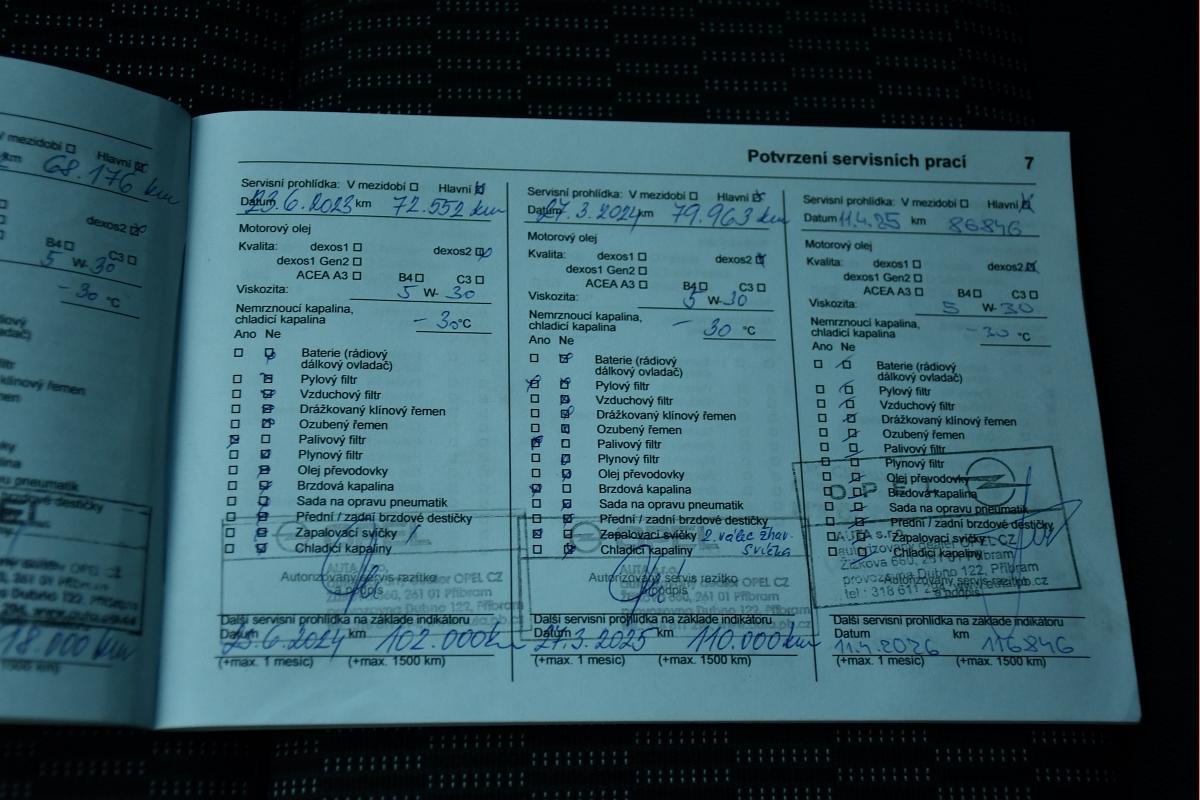 V mezidobí ☐ Hlavní ☒
km 68.176 km
dexos2 ☒
B4 ☐ C3 ☐
5 W-30
-30 °C
klínový řemen
18.000 km
Potvrzení servisních prací 7
Servisní prohlídka: V mezidobí ☐ Hlavní ☒
Datum 23.6.2023 km 72.552 km
Motorový olej
Kvalita: dexos1 ☐ dexos2 ☒
dexos1 Gen2 ☐
ACEA A3 ☐ B4 ☐ C3 ☐
Viskozita: 5 W-30
Nemrznoucí kapalina,
chladicí kapalina -30 °C
Ano Ne
Baterie (rádiový
dálkový ovladač)
Pylový filtr
Vzduchový filtr
Drážkovaný klínový řemen
Ozubený řemen
Palivový filtr
Plynový filtr
Olej převodovky
Brzdová kapalina
Sada na opravu pneumatik
Přední / zadní brzdové destičky
Zapalovací svíčky
Chladicí kapaliny
Autorizovaný servis razítko
a podpis
Další servisní prohlídka na základě indikátoru
Datum 23.6.2024 km 102.000 km
(+max. 1 měsíc) (+max. 1500 km)
Servisní prohlídka: V mezidobí ☐ Hlavní ☒
Datum 27.3.2024 km 79.963 km
Motorový olej
Kvalita: dexos1 ☐ dexos2 ☒
dexos1 Gen2 ☐
ACEA A3 ☐ B4 ☐ C3 ☐
Viskozita: 5 W-30
Nemrznoucí kapalina,
chladicí kapalina -30 °C
Ano Ne
Baterie (rádiový
dálkový ovladač)
Pylový filtr
Vzduchový filtr
Drážkovaný klínový řemen
Ozubený řemen
Palivový filtr
Plynový filtr
Olej převodovky
Brzdová kapalina
Sada na opravu pneumatik
Přední / zadní brzdové destičky
Zapalovací svíčky 2. válec žhav.
Chladicí kapaliny svíčka
OPEL
Autorizovaný servis razítko
a podpis
Další servisní prohlídka na základě indikátoru
Datum 27.3.2025 km 110.000 km
(+max. 1 měsíc) (+max. 1500 km)
Servisní prohlídka: V mezidobí ☐ Hlavní ☒
Datum 11.4.25 km 86846
Motorový olej
Kvalita: dexos1 ☐ dexos2 ☒
dexos1 Gen2 ☐
ACEA A3 ☐ B4 ☐ C3 ☐
Viskozita: 5 W-30
Nemrznoucí kapalina,
chladicí kapalina -30 °C
Ano Ne
Baterie (rádiový
dálkový ovladač)
Pylový filtr
Vzduchový filtr
Drážkovaný klínový řemen
Ozubený řemen
Palivový filtr
Plynový filtr
Olej převodovky
Brzdová kapalina
Sada na opravu pneumatik
Přední / zadní brzdové destičky
Zapalovací svíčky
Chladicí kapaliny
OPEL
Autorizovaný servis razítko
a podpis
Další servisní prohlídka na základě indikátoru
Datum 11.4.2026 km 116846
(+max. 1 měsíc) (+max. 1500 km)